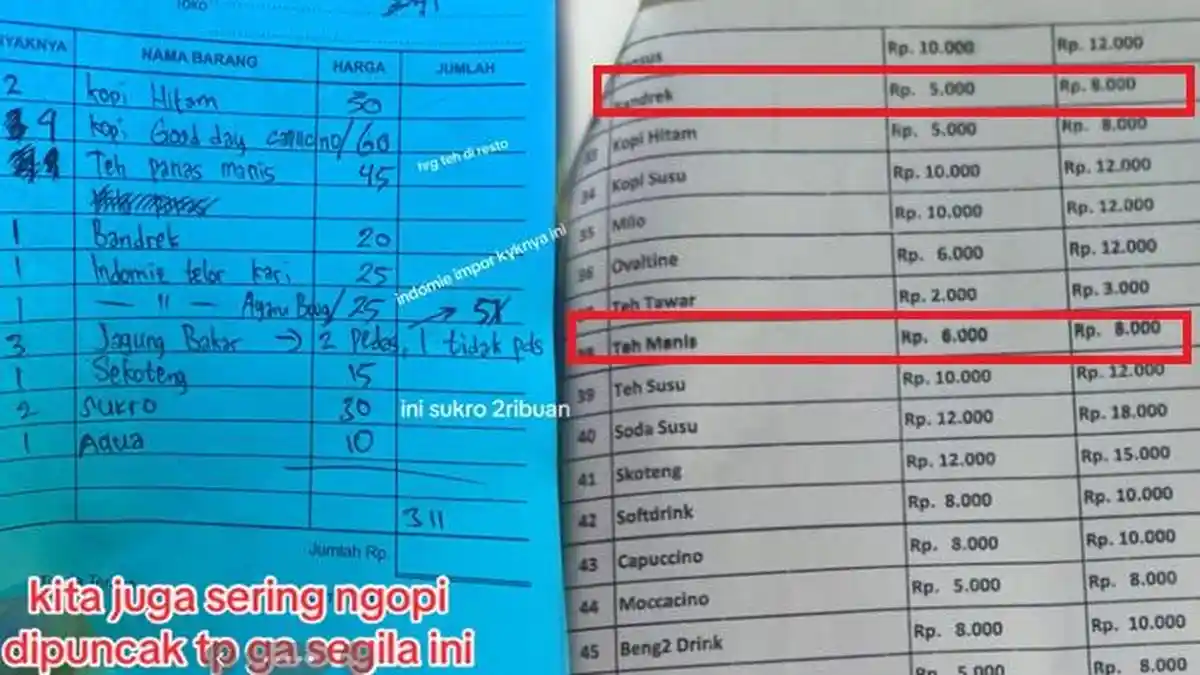 Toko
NYAKNYA NAMA BARANG HARGA JUMLAH
2 Kopi Hitam 30
4 kopi Good day capucino/ 60
Teh panas manis 45
hrg teh di resto
1 Bandrek 20
1 Indomie telor kari 25
indomie impor kyknya ini
1 — " — Ayam Bawg/ 25 → 5X
3 Jagung Bakar → 2 pedas, 1 tidak pds
1 Sekoteng 15
2 Sukro 30
ini sukro 2ribuan
1 Aqua 10
311
Jumlah Rp
kita juga sering ngopi
dipuncak tp ga segila ini
Rp. 10.000 Rp. 12.000
Bandrek Rp. 5.000 Rp. 8.000
33 Kopi Hitam Rp. 5.000 Rp. 8.000
34 Kopi Susu Rp. 10.000 Rp. 12.000
35 Milo Rp. 10.000 Rp. 12.000
36 Ovaltine Rp. 6.000 Rp. 12.000
Teh Tawar Rp. 2.000 Rp. 3.000
Teh Manis Rp. 6.000 Rp. 8.000
39 Teh Susu Rp. 10.000 Rp. 12.000
40 Soda Susu Rp. 12.000 Rp. 18.000
41 Skoteng Rp. 12.000 Rp. 15.000
42 Softdrink Rp. 8.000 Rp. 10.000
43 Capuccino Rp. 8.000 Rp. 10.000
44 Moccacino Rp. 5.000 Rp. 8.000
45 Beng2 Drink Rp. 8.000 Rp. 10.000
Rp. 5.000 Rp. 8.000